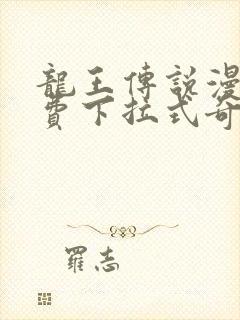 龍王傳說漫
費下拉式奇
羅志